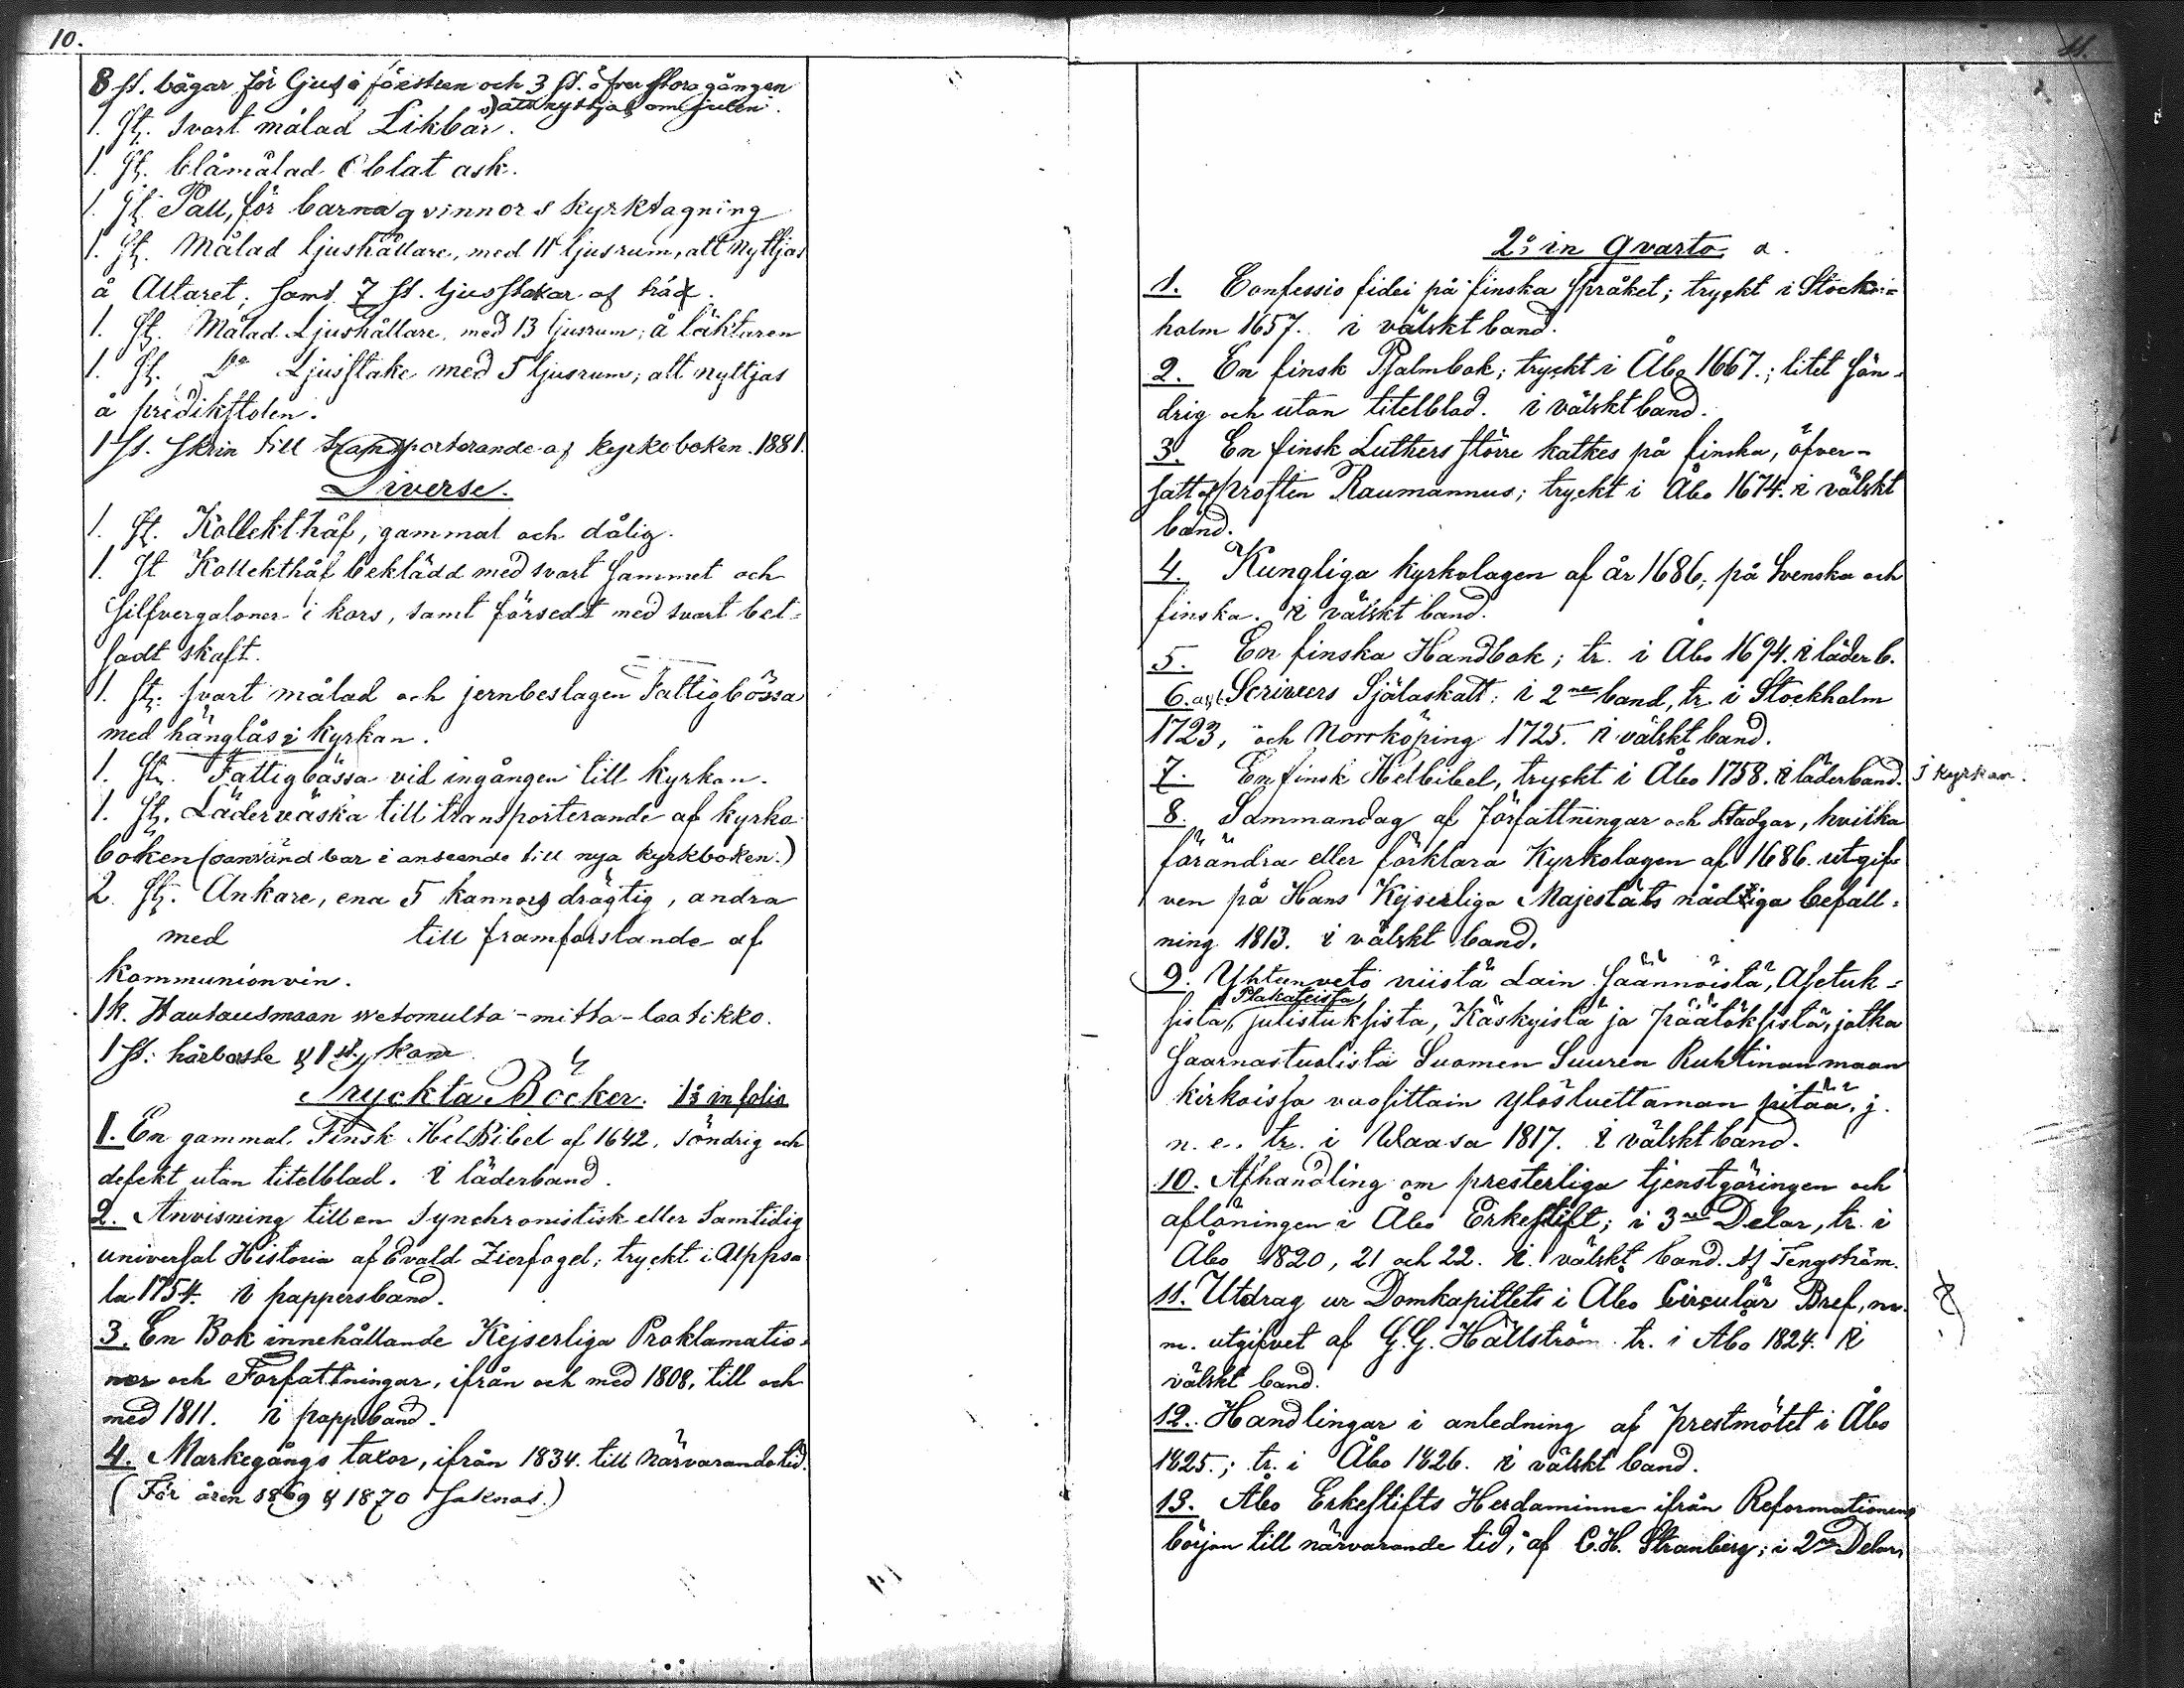 10.
8 st. bågar för Ljus i fönstren och 3 st. öfver stora gången
att nyttjas om julen.
1. St. Svart målad Likbår.
1. St. blåmålad Oblat ask.
1. St. Pall, för barnaqvinnors kyrktagning
1. St. Målad ljushållare, med 11 ljusrum, att nyttjas
å Altaret; samt 7 st. ljusstakar af träd.
1. St. Målad Ljushållare, med 13 ljusrum; å läktaren
1. St. Do Ljusstake med 5 ljusrum; att nyttjas
å predikstolen.
1 st. skrin till transporterande af kyrkoboken. 1881.
Diverse.
1. St. Kollekthåf, gammal och dålig.
1. St Kollekthåf beklädd med svart sammet och
silfvergaloner i kors, samt försedt med svart bet-
sadt skaft.
1. St. svart målad och jernbeslagen Fattigbössa
med hänglås i kyrkan.
1. St. Fattigbössa vid ingången till kyrkan.
1. St. Läderväska till transporterande af kyrko
boken (oanvänd bar i anseende till nya kyrkboken.)
2. St. Ankare, ena 5 kannors drägtig, andra
med till framforslande af
kommunionvin.
1 k. Hautausmaan wetomulta-mitta-laatikko.
1 st. hårborste & 1 st. kam
Tryckta Böcker. 1o in folio
1. En gammal Finsk HelBibel af 1642. Söndrig och
defekt utan titelblad. i läderband.
2. Anvisning till en Synchronistisk eller Samtidig
universal Historia af Evald Zierfogel; tryckt i Uppsa
la 1754. i pappersband.
3. En Bok innehållande Kejserliga Proklamatio-
ner och Författningar, ifrån och med 1808, till och
med 1811. i pappband.
4. Markegångs taxor, ifrån 1834. till närvarande tid.
(För åren 1869 & 1870 saknas.)
11.
2o in qvarto, a.
1. Confessio fidei på finska språket; tryckt i Stock-
holm 1657. i välskt band.
2. En finsk Psalmbok; tryckt i Åbo 1667.; litet sön-
drig och utan titelblad. i välskt band.
3. En finsk Luthers större katkes på finska, öfver-
satt af Prosten Raumannus; tryckt i Åbo 1674. i välskt
band.
4. Kungliga kyrkolagen af år 1686, på Svenska och
finska. i välskt band.
5. En finska Handbok; tr. i Åbo 1694. i läder b.
6. Scrivers Själaskatt; i 2ne band, tr. i Stockholm
1723, och Norrköping 1725. i välskt band.
7. En finsk Helbibel, tryckt i Åbo 1758. i läderband. I kyrkan.
8. Sammandag af författningar och stadgar, hvilka
förändra eller förklara Kyrkolagen af 1686. utgif-
ven på Hans Kejserliga Majestäts nådiga befall-
ning 1813. i välskt band.
9. Yhteenveto niistä Lain Säännöistä, Asetuk-
Plakateista,
sista, julistuksista, Käskyistä ja Päätöksistä, jotka
Saarnastuolista Suomen Suuren Ruhtinanmaan
kirkoissa vuosittain ylösluettaman pitää, j.
n. e. tr. i Waasa 1817. i välskt band.
10. Afhandling om presterliga tjenstgöringen och
aflöningen i Åbo Erkestift; i 3ne Delar, tr. i
Åbo 1820, 21 och 22. i välskt band. Af Tengström.
11. Utdrag ur Domkapitlets i Åbo Circulär Bref, m.
m. utgifvet af G.G. Hällström tr. i Åbo 1824. i
välskt band.
12. Handlingar i anledning af prestmötet i Åbo
1825.; tr. i Åbo 1826. i välskt band.
13. Åbo Erkestifts Herdaminne ifrån Reformationens
början till närvarande tid; af C.H. Stranberg; i 2ne Delar,